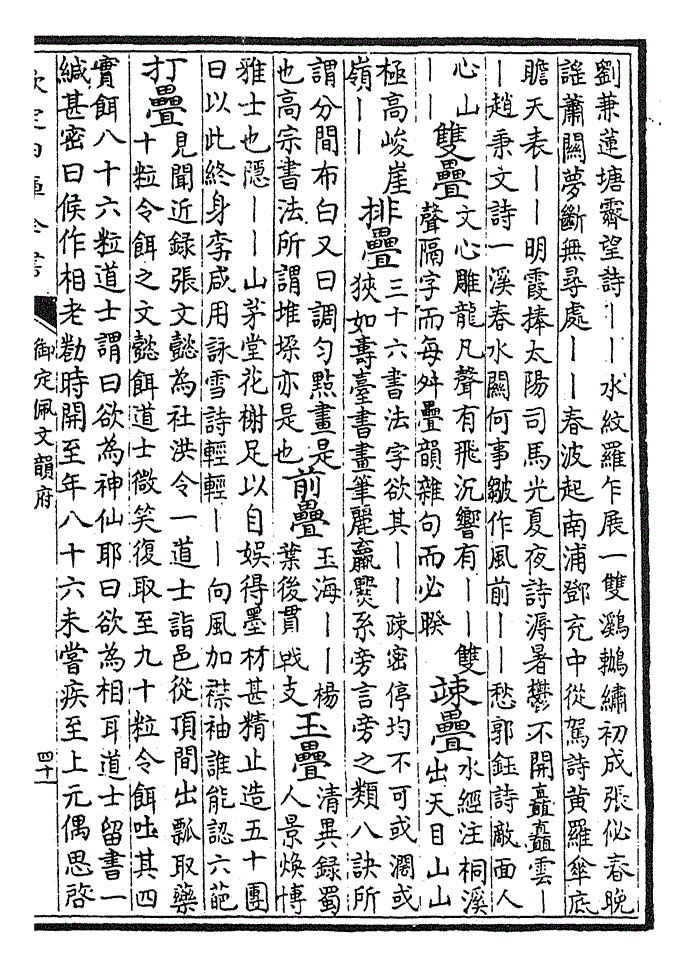 劉兼蓮塘霽望詩｜｜水紋羅乍展一雙鸂鶒繡初成張佖春晚
謡蕭闗夢斷無尋處｜｜春波起南浦鄧充中從駕詩黄羅傘底
瞻天表｜｜明霞捧太陽司馬光夏夜詩溽暑鬱不開矗矗雲｜
｜趙秉文詩一溪春水闗何事皺作風前｜｜愁郭鈺詩敵面人
心山
｜｜
雙疊
文心雕龍凡聲有飛沉響有｜｜雙
聲隔字而每舛疊韻雜句而必睽
竦疊
水經注桐溪
出天目山山
極高峻崖
嶺｜｜
排疊
三十六書法字欲其｜｜疎密停均不可或濶或
狹如壽臺書畫筆麗羸爨系旁言旁之類八訣所
謂分間布白又曰調匀點畫是
也高宗書法所謂堆垜亦是也
前疊
玉海｜｜楊
葉後貫戰支
玉疊
清異録蜀
人景煥博
雅士也隱｜｜山茅堂花榭足以自娛得墨材甚精止造五十團
曰以此終身李咸用詠雪詩輕輕｜｜向風加襟袖誰能認六葩
打疊
見聞近録張文懿為社洪令一道士詣邑從頂間出瓢取藥
十粒令餌之文懿餌道士微笑復取至九十粒令餌吐其四
實餌八十六粒道士謂曰欲為神仙耶曰欲為相耳道士留書一
緘甚密曰候作相老勸時開至年八十六未嘗疾至上元偶思啓
欽定四庫全書
御定佩文韻府
四十一